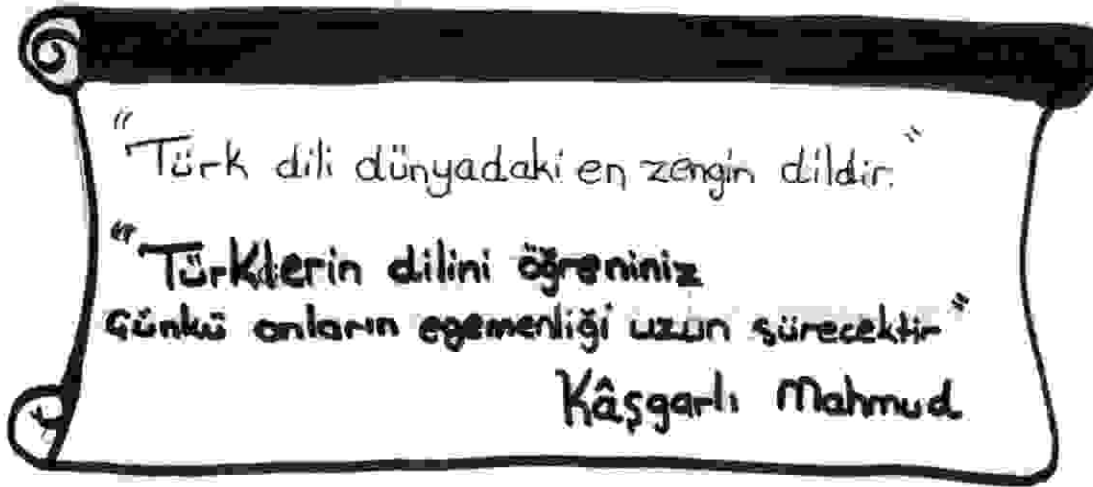 "Türk dili dünyadaki en zengin dildir."
"Türklerin dilini öğreniniz
Çünkü onların egemenliği uzun sürecektir"
Kâşgarlı Mahmud